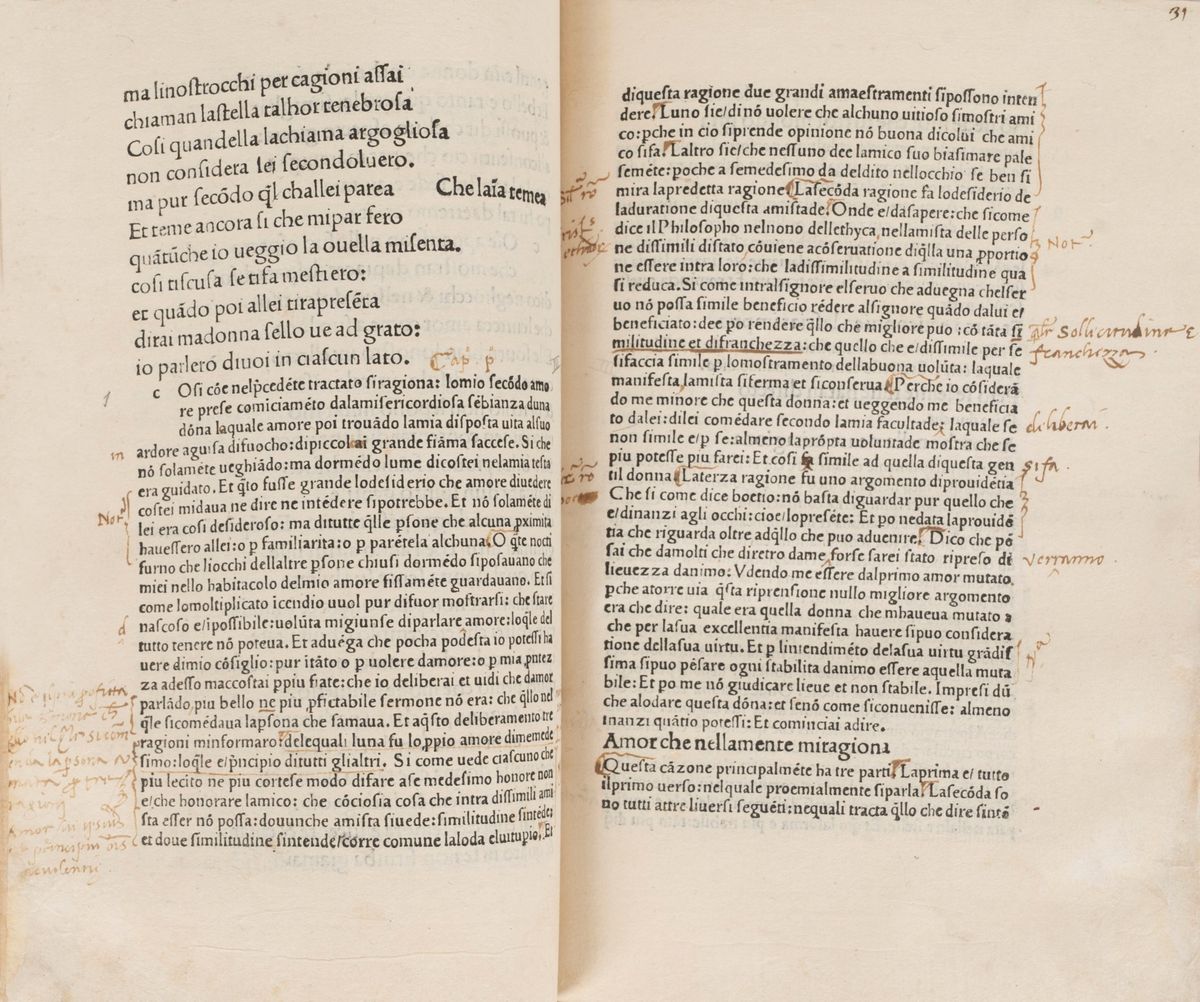 ma linostrocchi per cagioni assai
chiaman lastella talhor tenebrosa
Cosi quandella lachiama argogliosa
non considera lei secondoluero.
ma pur secōdo ql challei parea Che laīa temea
Et teme ancora si che mipar fero
quātūche io ueggio la ouella misenta.
cosi tiscusa se tifa mestiero:
et quādo poi allei tirapresēta
dirai madonna sello ue ad grato:
io parlero diuoi in ciascun lato.
Cap. p
1
c Osi cōe nelpcedēte tractato siragiona: lomio secōdo amo
re prese comiciamēto dalamisericordiosa sēbianza duna
dōna laquale amore poi trouādo lamia disposta uita alsuo
in
ardore aguisa difuocho: dipiccolai grande fiāma saccese. Si che
nō solamēte ueghiādo: ma dormēdo lume dicostei nelamia testa
era guidato. Et qto fusse grande lodesiderio che amore diuedere
costei midaua ne dire ne intēdere sipotrebbe. Et nō solamēte di
Not
lei era cosi desideroso: ma ditutte qlle psone che alcuna pximita
hauessero allei: o p familiarita: o p parētela alchuna. O qte nocti
furno che liocchi dellaltre psone chiusi dormēdo siposauano che
miei nello habitacolo delmio amore fissamēte guardauano. Et si
come lomoltiplicato icendio uuol pur difuor mostrarsi: che stare
d
nascoso e/ipossibile: uolūta migiunse diparlare amore: loqle del
tutto tenere nō poteua. Et aduēga che pocha podesta io potessi ha
uere dimio cōsiglio: pur itāto o p uolere damore: o p mia pntez
za adesso maccostai ppiu fiate: che io deliberai et uidi che damor
parlādo piu bello ne piu pfictabile sermone nō era: che qllo nel
qle sicomēdaua lapsona che samaua. Et aqsto deliberamento tre
ragioni minformaro: delequali luna fu lo ppio amore dimemede
simo: loqle e/pncipio ditutti glialtri. Si come uede ciascuno che
piu lecito ne piu cortese modo difare ase medesimo honore non
e/che honorare lamico: che cōciosia cosa che intra dissimili ami
sta esser nō possa: douunche amista siuede: similitudine sintēde:
et doue similitudine sintende/corre comune laloda eluitupio. Et
31
diquesta ragione due grandi amaestramenti sipossono inten
dere. Luno sie/di nō uolere che alchuno uitioso simostri ami
co: pche in cio siprende opinione nō buona dicolui che ami
co sifa. Laltro sie/che nessuno dee lamico suo biasimare pale
semēte: poche a semedesimo da deldito nellocchio se ben si
mira lapredetta ragione. Lasecōda ragione fa lodesiderio de
laduratione diquesta amistade. Onde e/dasapere: che sicome
dice il Philosopho nelnono dellethyca nellamista delle perso
Not
ne dissimili distato cōuiene acōseruatione diqlla una pportio
ne essere intra loro: che ladissimilitudine a similitudine qua
si reduca. Si come intralsignore elseruo che aduegna chelser
uo nō possa simile beneficio rēdere alsignore quādo dalui e/
beneficiato: dee po rendere qllo che migliore puo: cō tāta si
Sollicitudine
militudine et difranchezza: che quello che e/dissimile per se
franchezza
sifaccia simile p lomostramento dellabuona uolūta: laquale
manifesta lamista siferma et siconserua. Perche io cōsiderā
do me minore che questa donna: et ueggendo me beneficia
to dalei: dilei comēdare secondo lamia facultade: laquale se
deliberai
non simile e/p se: almeno laprōpta uoluntade mostra che se
piu potesse piu farei: Et cosi fa simile ad quella diquesta gen
si fa
til donna. Laterza ragione fu uno argomento diprouidētia
Che si come dice boetio: nō basta diguardar pur quello che
e/dinanzi agli occhi: cioe/lopresēte: Et po nedata laprouidē
tia che riguarda oltre adqllo che puo aduenire. Dico che pē
sai che damolti che diretro dame forse sarei stato ripreso di
verranno
lieuezza danimo: Vdendo me essere dalprimo amor mutato
pche atorre uia qsta riprensione nullo migliore argomento
era che dire: quale era quella donna che mhaueua mutato a
che per lasua excellentia manifesta hauere sipuo considera
tione dellasua uirtu. Et p lintendimēto delasua uirtu grādis
sima sipuo pēsare ogni stabilita danimo essere aquella muta
bile: Et po me nō giudicare lieue et non stabile. Impresi dū
che alodare questa dōna: et senō come siconuenisse: almeno
inanzi quātio potessi: Et cominciai adire.
Amor che nellamente miragiona
Questa cāzone principalmēte ha tre parti. Laprima e/tutto
ilprimo uerso: nelquale proemialmente siparla. Lasecōda so
no tutti attre liuersi seguēti: nequali tracta qllo che dire sintē